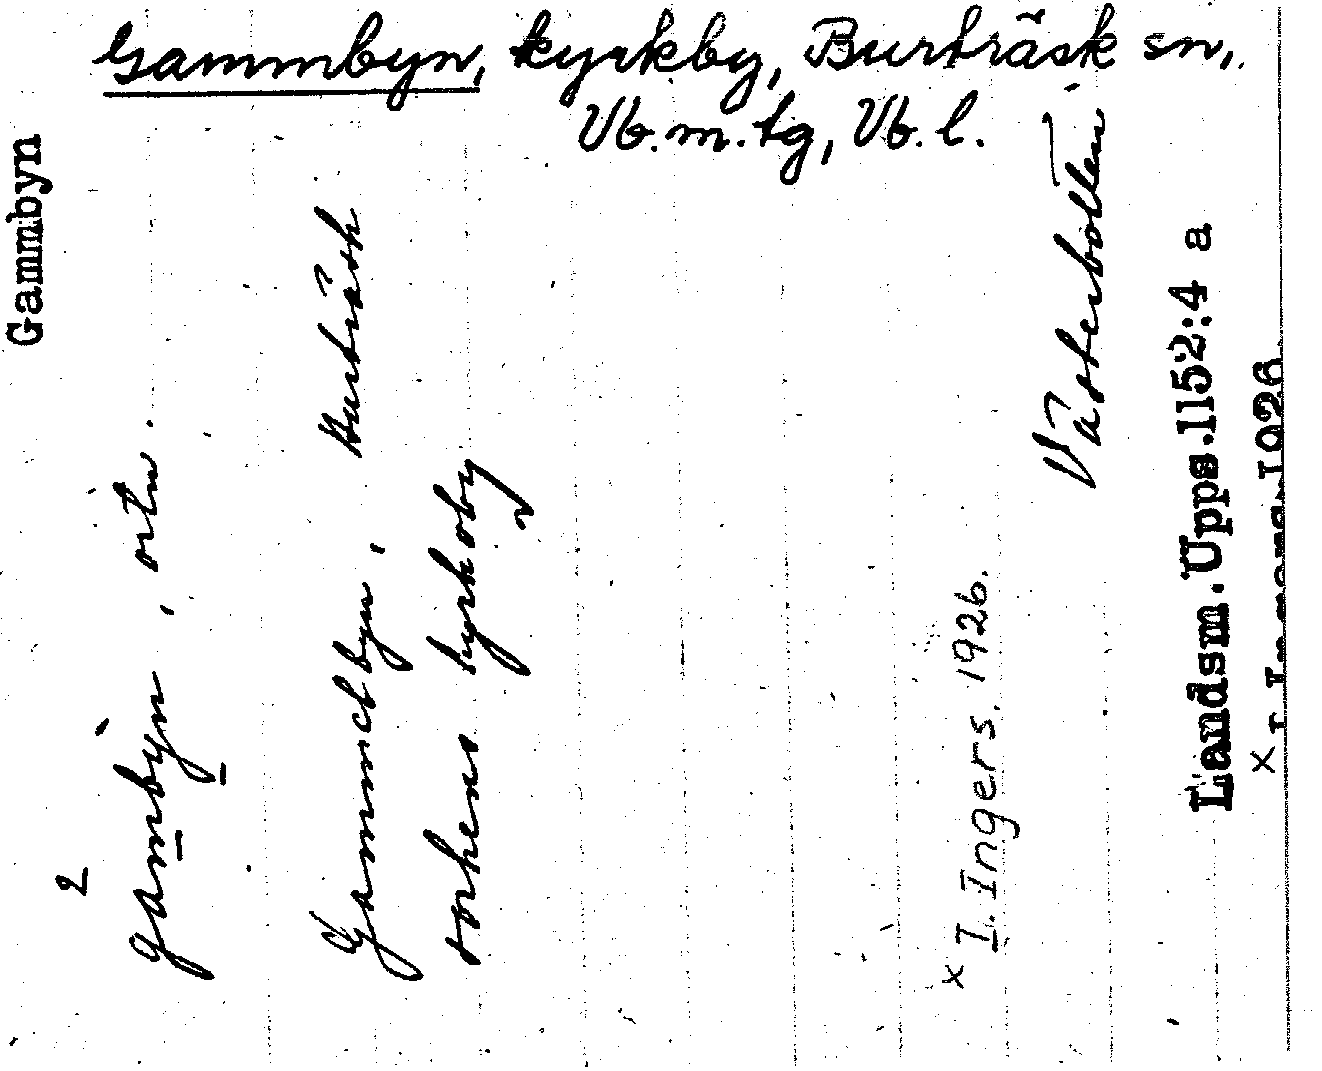 Gammbyn, kyrkby, Burträsk sn,
Vb.m.tg, Vb.l.
Gammbyn
2
gambyn, ortn.
Gammelbyn, Burträsk
sockens kyrkoby
x I. Ingers. 1926.
Västerbotten
Landsm.Upps.1152:4 a
x I. Ingers. 1926.